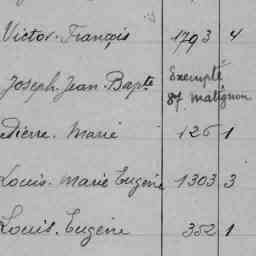 Victor. François 1793 4
Exempté
Joseph. Jean. Bapte
87 matignon
Pierre. Marie 126 1
Louis. Marie Eugène 1303 3
Louis. Eugène 352 1